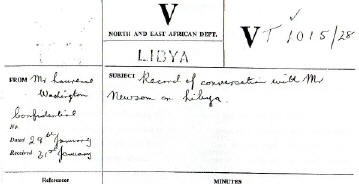 V
NORTH AND EAST AFRICAN DEPT.
VT 1015/28
LIBYA
FROM Mr Laurence
Washington
Confidential
No.
Dated 29th January
Received 31st January
SUBJECT Record of conversation with Mr
Newsom on Libya.
References
MINUTES